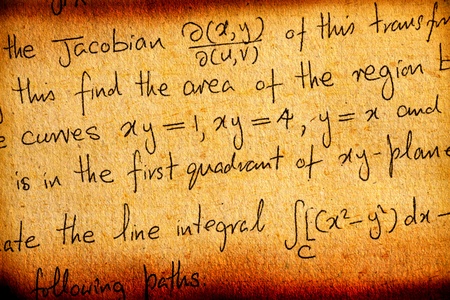 the Jacobian ∂(x,y)/∂(u,v) of this transfor
this find the area of the region b
e curves xy=1, xy=4, y=x and
is in the first quadrant of xy-plane
ate the line integral ∫C[(x²-y²)dx-
following paths.